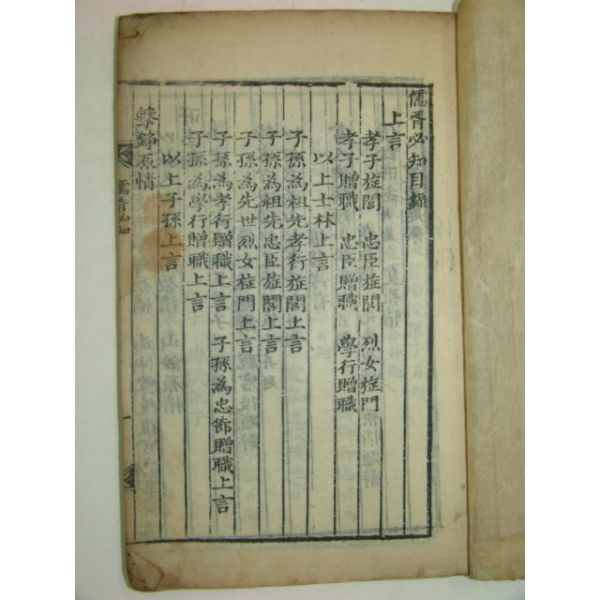 儒胥必知目錄
上言
孝子㫌閭　忠臣㫌閭　烈女㫌門
孝子贈職　忠臣贈職　學行贈職
以上士林上言
子孫為祖先孝行㫌閭上言
子孫為祖先忠臣㫌閭上言
子孫為先世烈女㫌門上言
子孫為孝行贈職上言　子孫為忠節贈職上言
子孫為學行贈職上言
以上子孫上言
擊錚原情
儒胥必知